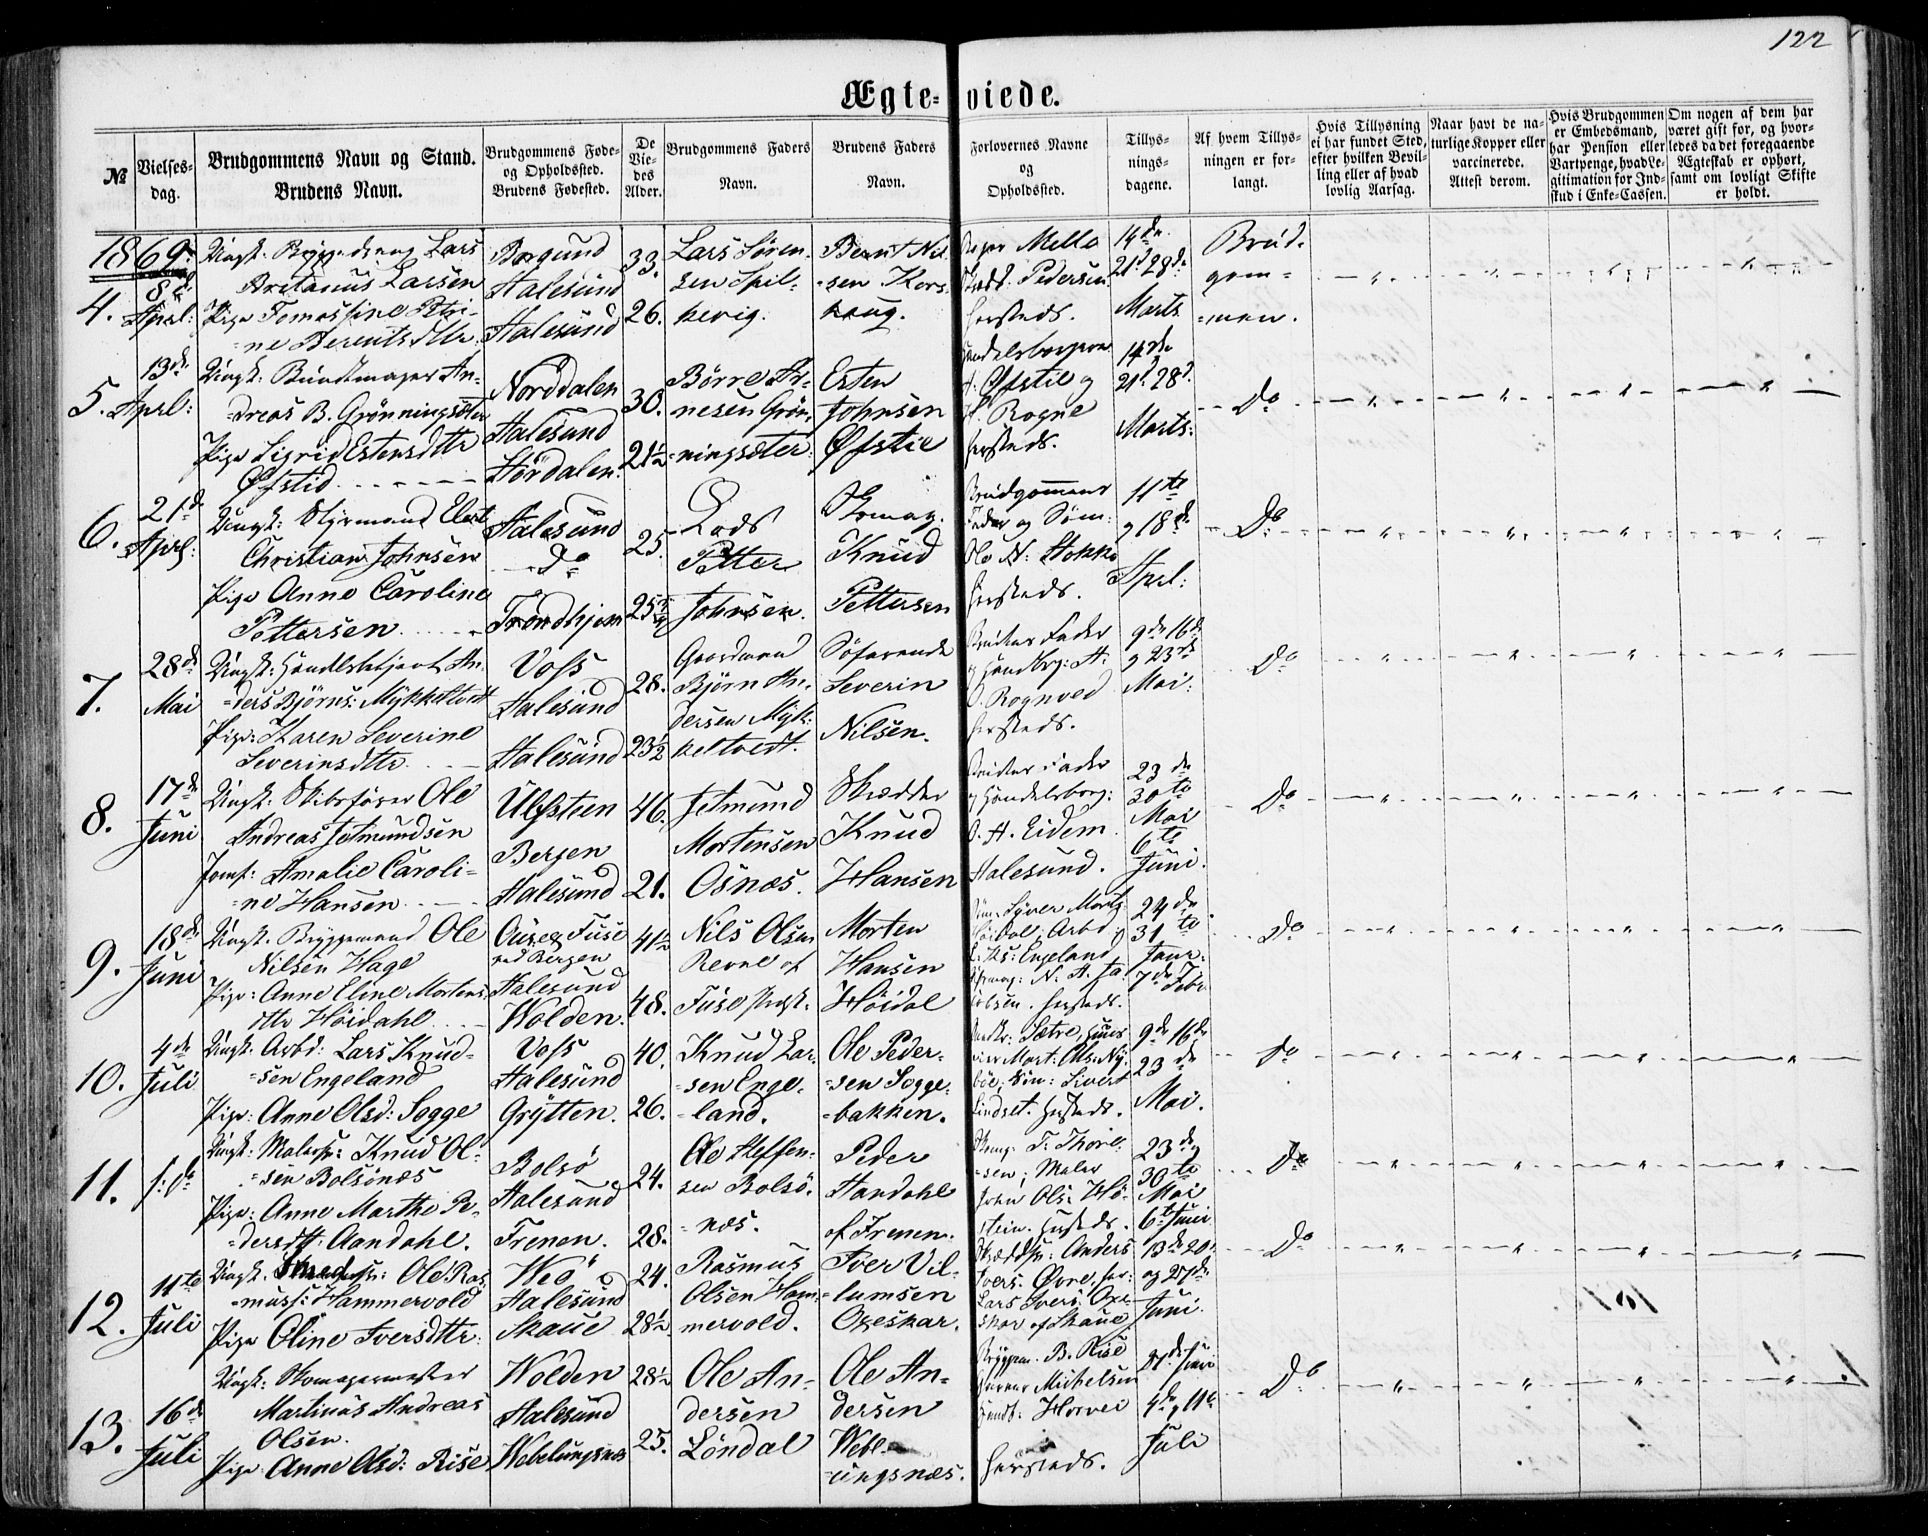 122
Ægte-viede.
№
Vielses-
dag.
Brudgommens Navn og Stand.
Brudens Navn.
Brudgommens Føde-
og Opholdssted.
Brudens Fødested.
De
Vie-
des
Alder.
Brudgommens Faders
Navn.
Brudens Faders
Navn.
Forlovernes Navne
og
Opholdssted.
Tillys-
nings-
dagene.
Af hvem Tillys-
ningen er for-
langt.
Hvis Tillysning
ei har fundet Sted,
efter hvilken Bevil-
ling eller af hvad
lovlig Aarsag.
Naar havt de na-
turlige Kopper eller
vaccinerede.
Attest derom.
Hvis Brudgommen
er Embedsmand,
har Pension eller
Vartpenge, hvad Le-
gitimation for Ind-
skud i Enke-Cassen.
Om nogen af dem har
været gift før, og hvor-
ledes da det foregaaende
Ægteskab er ophørt,
samt om lovligt Skifte
er holdt.
1869.
4.
8de
April:
Ungk: Lars
Larsen
Pige Tomassine Petri-
ne Berentsdttr.
Borgund
Aalesund
Aalesund
33.
26.
Lars Søren-
sen Spil-
kevig.
Bernt Nil-
sen Kors-
haug.
Pedersen
hersteds.
14de
21d 28de
Marts
Brud-
gom-
men.
5.
13de
Aprl:
Ungk: Buntmager An-
dreas B. Grønningsæter
Pige Sigrid Estensdttr
Øfstid
Norddalen
Aalesund
Størdalen.
30.
21½
Børre Ar-
nesen Grøn-
ningsæter
Esten
Johnsen
Øfstie
Øfstie og
Rogne
hersteds.
14de
21d 28d
Marts:
Do
6.
21de
Aprl:
Ungk: Styrmand Elert
Christian Johnsen
Pige Anne Caroline
Pettersen
Aalesund
do
Trondhjem
25.
Lods
Petter
Johnsen.
Skomag.
Knud
Pettersen
Brudgommens
Fader og Søm:
Ole N: Stokke
hersteds.
11te
og 18de
Aprl:
Do
7.
28de
Mai
Ungk: Handelsbetjent An-
ders Bjørns: Mykkeltvedt
Pige: Karen Severine
Severinsdttr.
Voss
Aalesund
Aalesund
28.
23½
Gaardmand
Bjørn An-
dersen Myk-
keltvedt.
Søfarende
Severin
Nilsen.
Brudens Fader
og Handbrg: A.
O. Rognved
hersteds.
9de 16de
og 23de
Mai:
Do
8.
17de
Juni
Ungk: Skibsfører Ole
Andreas Jetmundsen
Jomf: Amalie Caroli-
ne Hansen
Ulfstien
Bergen
Aalesund
46.
21.
Jetmund
Mortensen
Osnæs.
Skrædder
Knud
Hansen
Brudens Fader
og Handelsborg:
O. A. Eidem
Aalesund.
23de
30te
Mai
6te
Juni.
Do
9.
18de
Juni
Ungk. Bryggemand Ole
Nilsen Hage
Pige: Anne Eline Mortens
dttr Høidahl
Fuse
ved Bergen
Aalesund
Wolden.
41½
48.
Nils Olsen
Revne af
Fuse Prst.
Morten
Hansen
Høidal
Syver Mortz
Høidal; Arbd:
Engeland
N. A. Ja-
cobsen. hersteds.
24de
31te
Janr:
7de Febr
Do
10.
4de
Juli
Ungk: Arbd: Lars Knud-
sen Engeland
Pige: Anne Olsd: Sogge
Voss
Aalesund
Grytten.
40.
26.
Knud Lar-
sen Enge-
land.
Ole Peder-
sen Sogge-
bakken.
Sætre,
Mart: Ols: Ny-
bøe; Sivert
Lindset. hersteds.
9de 16de
23de
Mai.
Do
11.
s: D:
Ungk: Malersv: Knud Ol-
sen Bolsønæs
Pige: Anne Marthe Pe-
dersdtt: Aandahl.
Bolsø
Aalesund
Frenen.
24.
28.
Ole Steffen-
sen Bolsø-
næs.
Peder
Aandahl
af Frenen.
T: Thorel-
sen; Maler
John Ols: Hø-
stein. hersteds.
23de
30te
Mai
6te Juni
Do
12.
11te
Juli
Ungk. Smedsv: Ole Ras
muss: Hammervold
Pige Oline Iversdttr.
Weö
Aalesund
Skaue
24.
28½
Rasmus
Olsen Ham-
mervold.
Iver Vil-
lumsen
Oxeskar.
Skrædsv: Anders
Ivers: Øvre, her:
Lars Ivers: Oxe-
skar af Skaue
13de 20de
og 27de
Juni.
Do
13.
16de
Juli
Ungk: Skomagermester
Martinus Andreas
Olsen.
Pige: Anne Olsd: Rise
Wolden
Aalesund
Webelungsnæs
28½
25.
Ole An-
dersen
Løndal
Ole An-
dersen
Webl-
ungsnæs.
Bryggm. B. Rise
Michelsen
Horvei
hersteds.
27de Juni
4de og 11te
Juli
Do